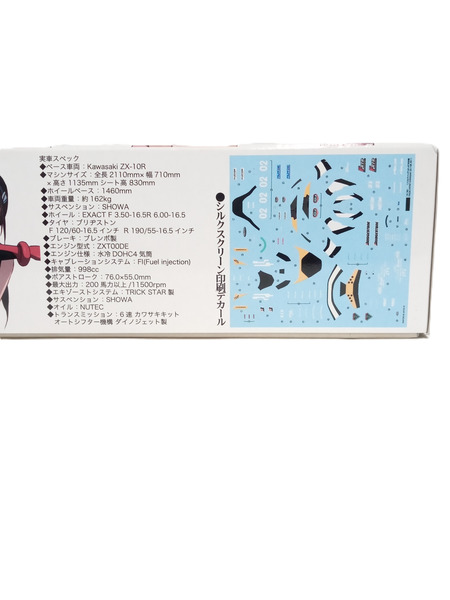 実車スペック
◆ベース車両：Kawasaki ZX-10R
◆マシンサイズ：全長 2110mm× 幅 710mm
× 高さ 1135mm シート高 830mm
◆ホイールベース：1460mm
◆車両重量：約 162kg
◆サスペンション：SHOWA
◆ホイール：EXACT F 3.50-16.5R 6.00-16.5
◆タイヤ：ブリヂストン
F 120/60-16.5 インチ R 190/55-16.5 インチ
◆ブレーキ：ブレンボ製
◆エンジン型式：ZXT00DE
◆エンジン仕様：水冷 DOHC4 気筒
◆キャブレーションシステム：FI(Fuel injection)
◆排気量：998cc
◆ボアストローク：76.0×55.0mm
◆最大出力：200 馬力以上 /11500rpm
◆エキゾーストシステム：TRICK STAR 製
◆サスペンション：SHOWA
◆オイル：NUTEC
◆トランスミッション：6 速 カワサキキット
オートシフター機構 ダイノジェット製
●シルクスクリーン印刷デカール
02
02
02
02
02